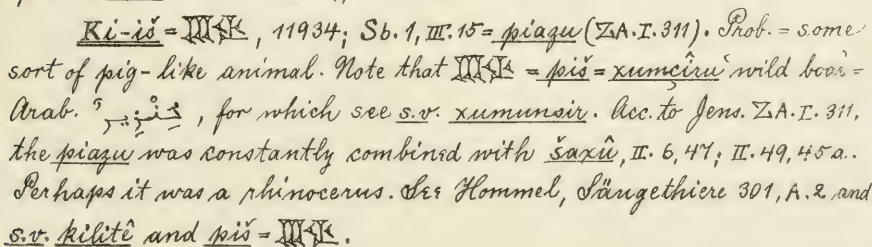 Ki-iš = , 11934; Sb. 1, III. 15 = piazu (ZA. I. 311). Prob. = some
sort of pig-like animal. Note that = piš = xumçîru 'wild boar' =
Arab. خنزير, for which see s.v. xumunsir. Acc. to Jens. ZA. I. 311,
the piazu was constantly combined with šaxû, II. 6, 47; II. 49, 45a.
Perhaps it was a rhinocerus. See Hommel, Säugethiere 301, A. 2 and
s.v. kilitê and piš = .